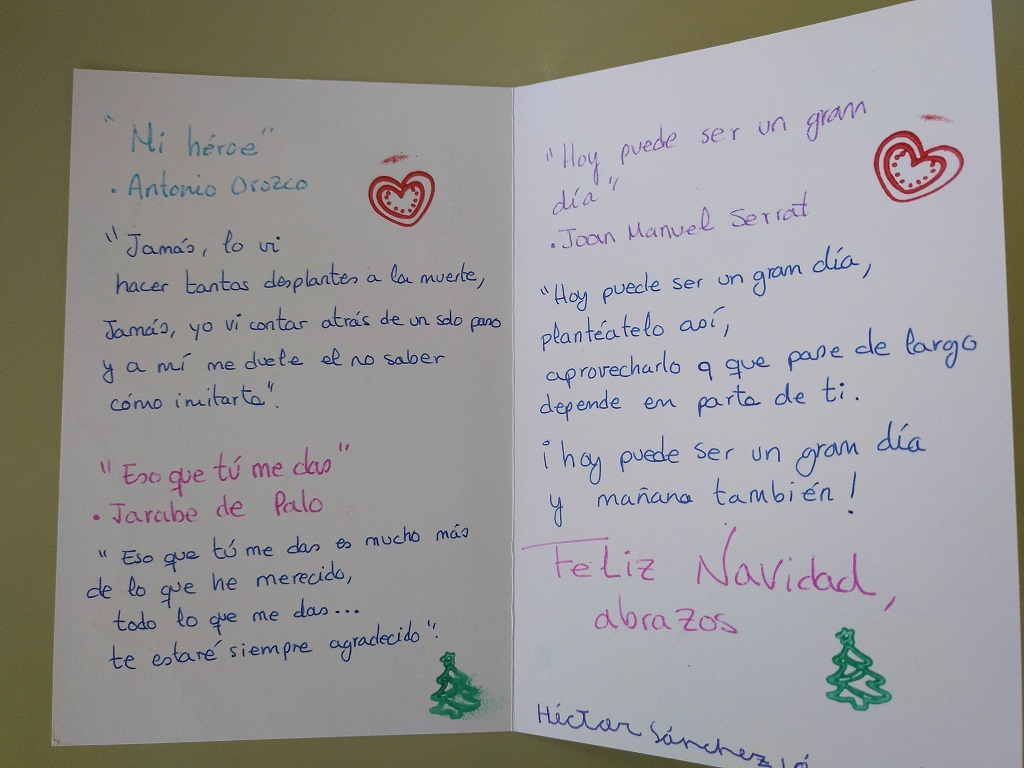 "Mi héroe"
. Antonio Orozco
"Jamás, lo vi
hacer tantas desplantes a la muerte,
Jamás, yo vi contar atrás de un solo paso
y a mí me duele el no saber
cómo imitarte".
"Eso que tú me das"
. Jarabe de Palo
"Eso que tú me das es mucho más
de lo que he merecido,
todo lo que me das...
te estaré siempre agradecido".
"Hoy puede ser un gram
día"
. Joan Manuel Serrat
"Hoy puede ser un gram día,
plantéatelo así,
aprovecharlo q que pase de largo
depende em parte de ti.
¡hoy puede ser un gram día
y mañana también!
Feliz Navidad,
abrazos
Héctor Sánchez